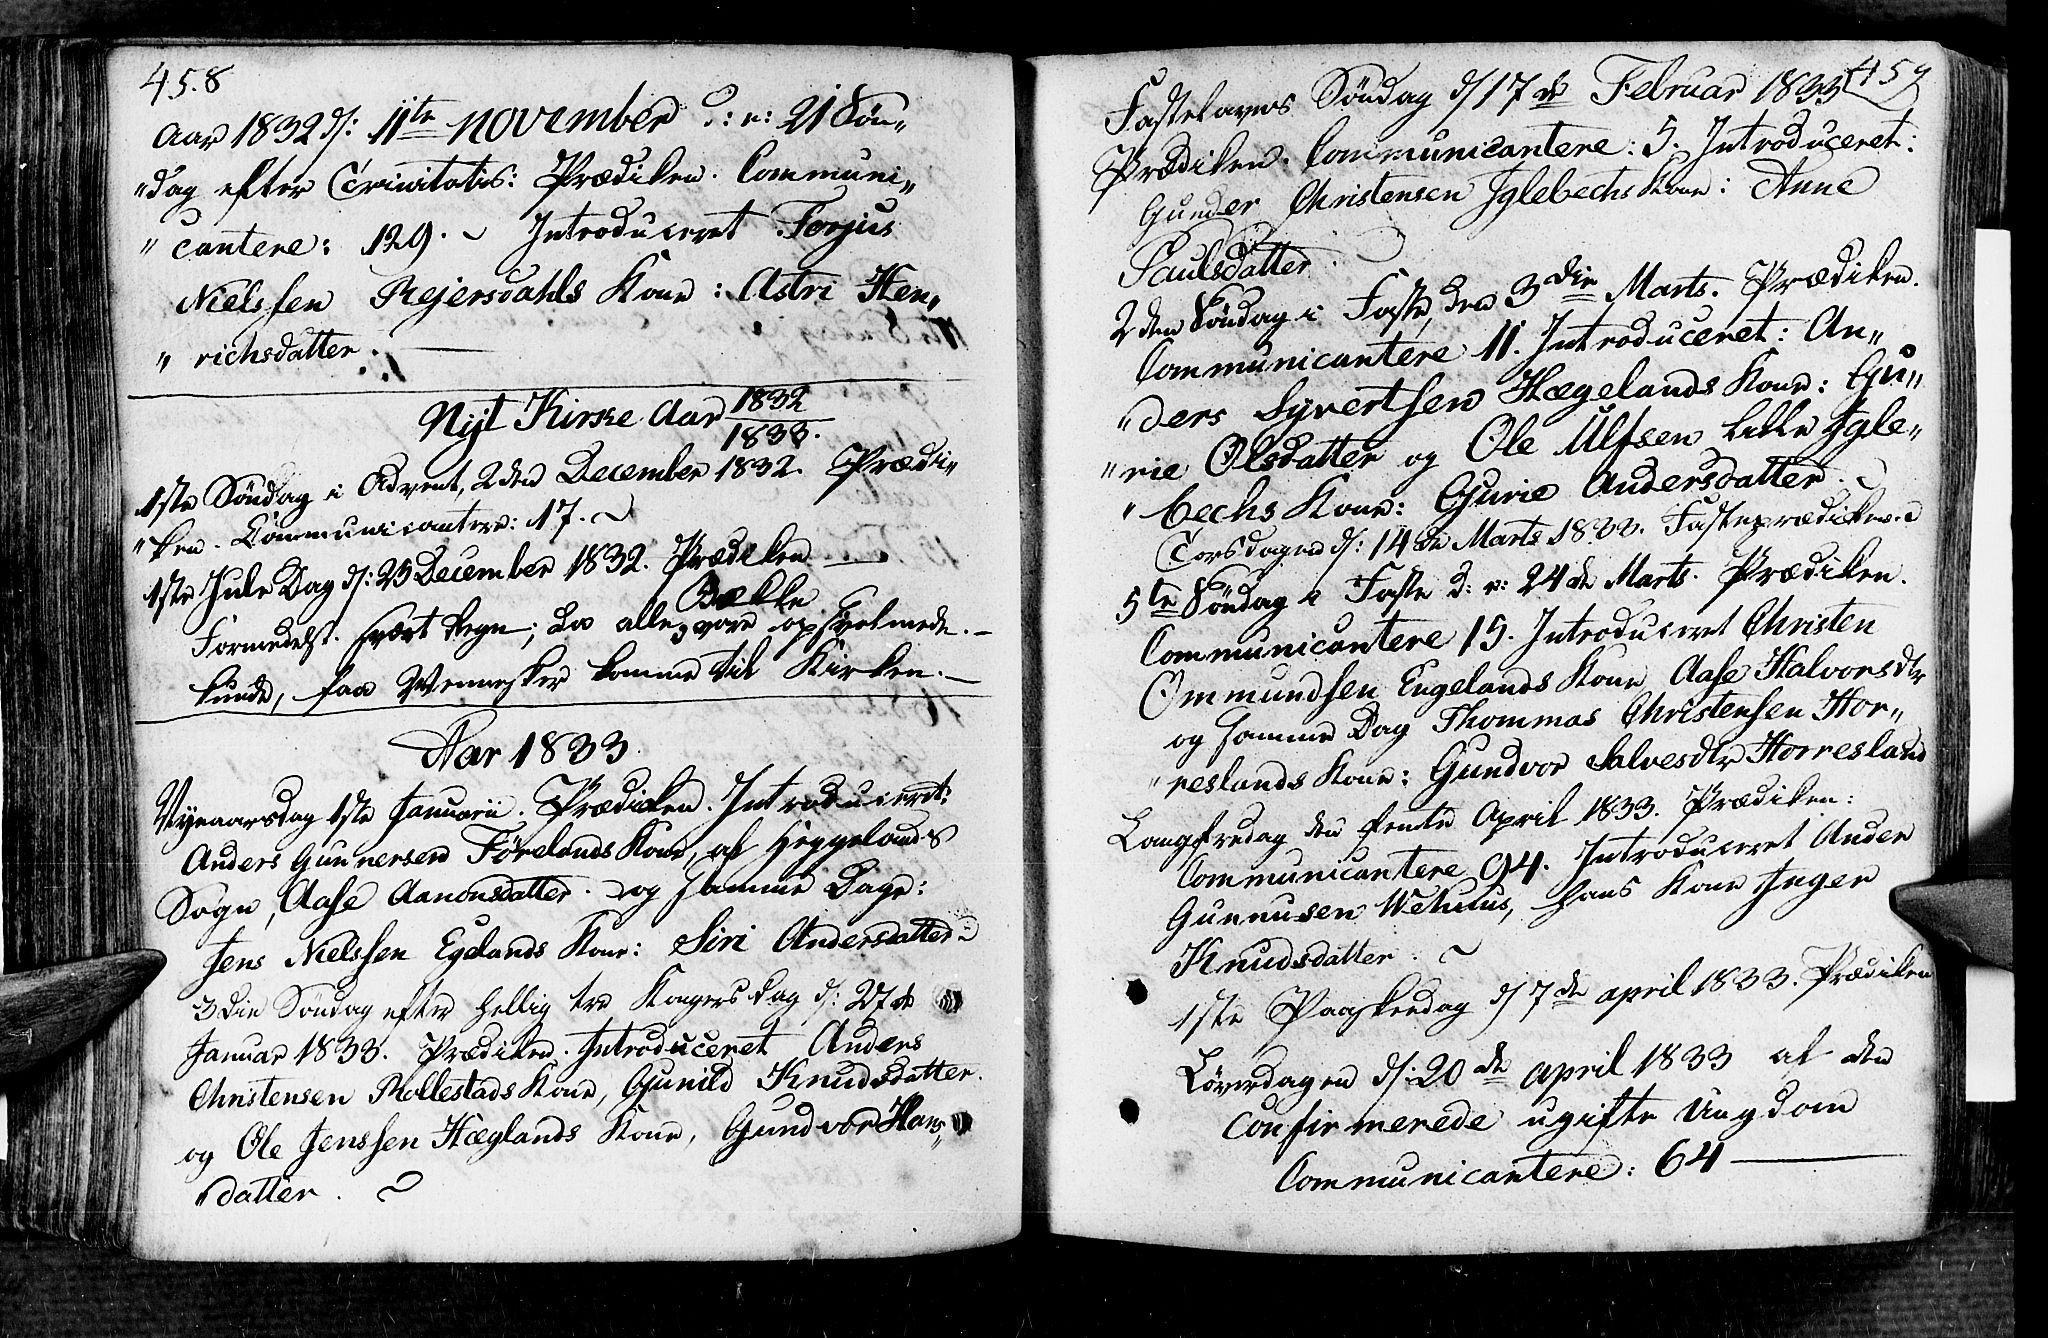 458
Aar 1832 d: 11te November d: e: 21 Søn„
„dag efter Trinitatis: Prædiken. Communi„
„cantere: 129. Introduceret Torjus
Nielssen Rejersdahls Kone: Astri Hen„
„richsdatter.
Nijt Kirke Aar 1832
1833.
1ste Søndag i Advent, 2den December 1832. Prædi„
„ken. Communicantere: 17.
1ste Jule Dag d: 25 December 1832. Prædiken
Bække
Formedelst svært Regn; da alle, vare opsvolmede.
kunde, faa Mennesker komme til Kirken.
Aar 1833
Nyeaarsdag 1ste Januarii. Prædiken. Introduceret:
Anders Gunnersen Førelands Kone, af Heggelands
Sogn, Aase Aanonsdatter. og samme Dage:
Jens Nielssen Egelands Kone: Siri Andersdatter
3die Søndag efter hellig tre Kongers dag d: 27de
Januar 1833. Prædiken. Introduceret Anders
Christensen Rollestads Kone, Gunild Knudsdatter.
og Ole Jenssen Hæglands Kone, Gundvor Hans„
„datter.
459
Fastelavns Søndag d 17de Februar 1833
Prædiken. Communicantere: 5. Introduceret:
Gunder Christensen Iglebechs Kone: Anne
Paulsdatter.
2den Søndag i Faste, den 3die Marts. Prædiken.
Communicantere 11. Introduceret: An„
„ders Syvertsen Hægelands Kone: Gu„
„rie Olsdatter og Ole Ulfsen Lille Igle„
„bechs Kone: Gurie Andersdatter.
Torsdagen d: 14de Marts 1833. Fasteprædiken.
5te Søndag i Faste d: e: 24de Marts. Prædiken.
Communicantere 15. Introduceret Christen
Ommundsen Engelands Kone Aase Halvorsdtr
og samme Dag Thommas Christensen Hor„
„reslands Kone: Gundvor Salvesdtr Horresland
Langfredag den femte April 1833. Prædiken:
Communicantere 94. Introduceret Ander
Gunnusen Wehuus, hans Kone Inger
Knudsdatter.
1ste Paaskedag d 7de april 1833. Prædiken
Løverdagen d: 20de april 1833 af den
Confirmerede ugifte Ungdom
Communicantere: 64